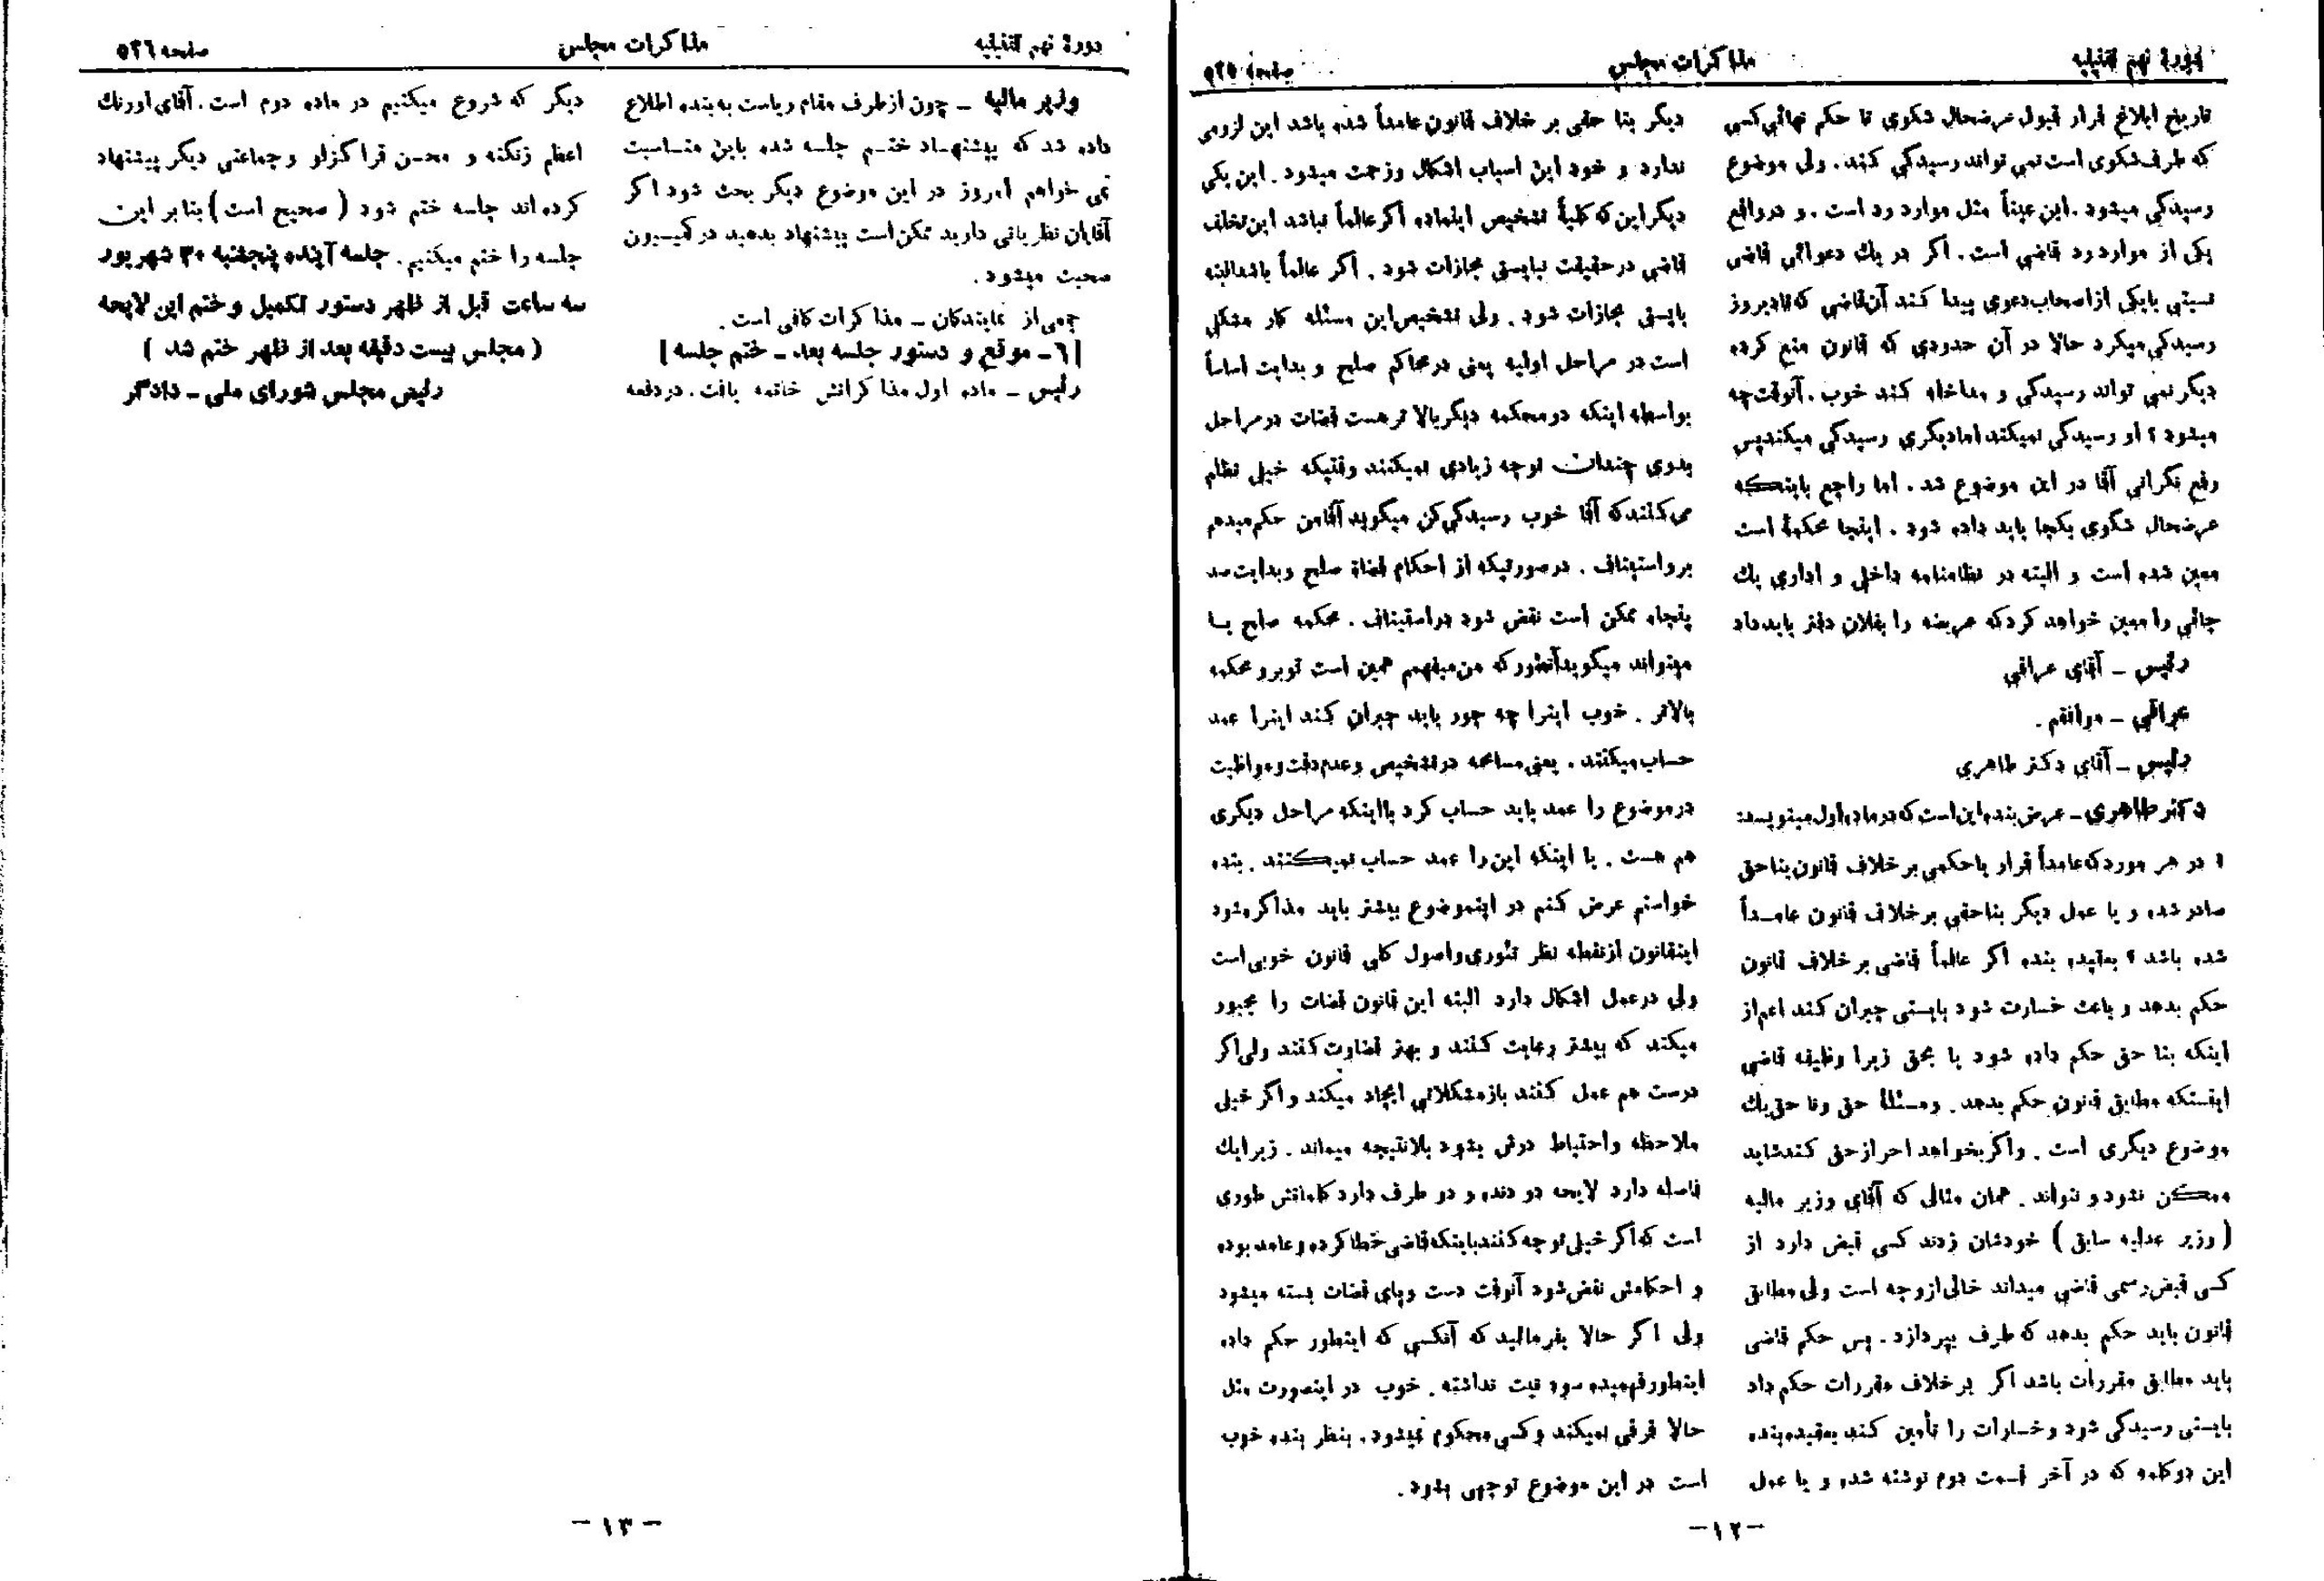 دورهٔ نهم تقنینیه
مذاکرات مجلس
صفحه ۵۲۵
تاریخ ابلاغ قرار قبول عرضحال شکوی تا حکم نهائی کسی
که طرف شکوی است نمی تواند رسیدگی کند. ولی موضوع
رسیدگی میشود. این عیناً مثل موارد رد است. و در واقع
یکی از موارد رد قاضی است. اگر در یك دعوائی قاضی
نسبتی با یکی از اصحاب دعوی پیدا کند آن قاضی که تا دیروز
رسیدگی میکرد حالا در آن حدودی که قانون منع کرده
دیگر نمی تواند رسیدگی و مداخله کند خوب. آنوقت چه
میشود؟ او رسیدگی نمیکند اما دیگری رسیدگی میکند پس
رفع نگرانی آقا در این موضوع شد. اما راجع باینکه
عرضحال شکوی بکجا باید داده شود. اینجا محکمهٔ است
معین شده است و البته در نظامنامه داخلی و اداری یك
جائی را معین خواهد کرد که عریضه را بفلان دفتر باید داد
رئیس - آقای عراقی
عراقی - موافقم.
رئیس - آقای دکتر طاهری
دکتر طاهری - عرض بنده این است که در ماده اول مینویسد:
« در هر مورد که عامداً قرار یا حکمی بر خلاف قانون بناحق
صادر شده و یا عمل دیگر بناحقی بر خلاف قانون عامداً
شده باشد » بعقیده بنده اگر عالماً قاضی بر خلاف قانون
حکم بدهد و باعث خسارت شود بایستی جبران کند اعم از
اینکه بنا حق حکم داده شود یا بحق زیرا وظیفه قاضی
اینستکه مطابق قانون حکم بدهد. و مسئلهٔ حق و نا حق یك
موضوع دیگری است. و اگر بخواهد احراز حق کند شاید
ممکن نشود و نتواند. همان مثالی که آقای وزیر مالیه
( وزیر عدلیه سابق ) خودشان زدند کسی قبض دارد از
کسی قبض رسمی قاضی میداند خالی از وجه است ولی مطابق
قانون باید حکم بدهد که طرف بپردازد. پس حکم قاضی
باید مطابق مقررات باشد اگر بر خلاف مقررات حکم داد
بایستی رسیدگی شود و خسارات را تأمین کند بعقیده بنده
این دو کلمه که در آخر قسمت دوم نوشته شده و یا عمل
دیگر بنا حقی بر خلاف قانون عامداً شده باشد این لزومی
ندارد و خود این اسباب اشکال و زحمت میشود. این یکی
دیگر این که کلیهٔ تشخیص اینماده اگر عالماً نباشد این تخلف
قاضی در حقیقت نبایستی مجازات شود. اگر عالماً باشد البته
بایستی مجازات شود. ولی تشخیص این مسئله کار مشکلی
است در مراحل اولیه یعنی در محاکم صلح و بدایت اساساً
بواسطه اینکه دو محکمه دیگر بالا تر هست قضات در مراحل
بدوی چندان توجه زیادی نمیکنند وقتیکه خیلی تظلم
می کنند که آقا خوب رسیدگی کن میگوید آقا من حکم میدهم
برو استیناف. در صورتیکه از احکام قضاة صلح و بدایت صد
پنجاه ممکن است نقض شود در استیناف. محکمه صلح یا
میتواند میگوید آنطور که من میفهمم همین است تو برو محکمه
بالاتر. خوب اینرا چه جور باید جبران کند اینرا عمد
حساب میکنند. یعنی مسامحه در تشخیص و عدم دقت و مواظبت
در موضوع را عمد باید حساب کرد یا اینکه مراحل دیگری
هم هست. یا اینکه این را عمد حساب نمیکنند. بنده
خواستم عرض کنم در اینموضوع بیشتر باید مذاکره شود
اینقانون از نقطه نظر تئوری و اصول کلی قانون خوبی است
ولی در عمل اشکال دارد البته این قانون قضات را مجبور
میکند که بیشتر رعایت کنند و بهتر قضاوت کنند ولی اگر
درست هم عمل کنند باز مشکلاتی ایجاد میکند و اگر خیلی
ملاحظه و احتیاط درش بشود بلانتیجه میماند. زیرا یك
فاصله دارد لایحه دو دنده و دو طرف دارد کلماتش طوری
است که اگر خیلی توجه کنند باینکه قاضی خطا کرده و عامد بوده
و احکامش نقض شود آنوقت دست و پای قضات بسته میشود
ولی اگر حالا بفرمائید که آنکسی که اینطور حکم داده
اینطور فهمیده سوء نیت نداشته. خوب در اینصورت مثل
حالا فرقی نمیکند و کسی محکوم نمیشود. بنظر بنده خوب
است در این موضوع توجهی بشود.
- ۱۲ -
دورهٔ نهم تقنینیه
مذاکرات مجلس
صفحه ۵۲۶
وزیر مالیه - چون از طرف مقام ریاست به بنده اطلاع
داده شد که پیشنهاد ختم جلسه شده باین مناسبت
نمی خواهم امروز در این موضوع دیگر بحث شود اگر
آقایان نظریاتی دارید ممکن است پیشنهاد بدهید در کمیسیون
صحبت میشود.
جمعی از نمایندگان - مذاکرات کافی است.
[ ٦ - موقع و دستور جلسه بعد - ختم جلسه ]
رئیس - ماده اول مذاکراتش خاتمه یافت. در دفعه
دیگر که شروع میکنیم در ماده دوم است. آقای اورنك
اعظم زنگنه و محسن قراگزلو و جماعتی دیگر پیشنهاد
کرده اند جلسه ختم شود ( صحیح است ) بنا بر این
جلسه را ختم میکنیم. جلسه آینده پنجشنبه ۳۰ شهریور
سه ساعت قبل از ظهر دستور تکمیل و ختم این لایحه
( مجلس بیست دقیقه بعد از ظهر ختم شد )
رئیس مجلس شورای ملی - دادگر
- ۱۳ -